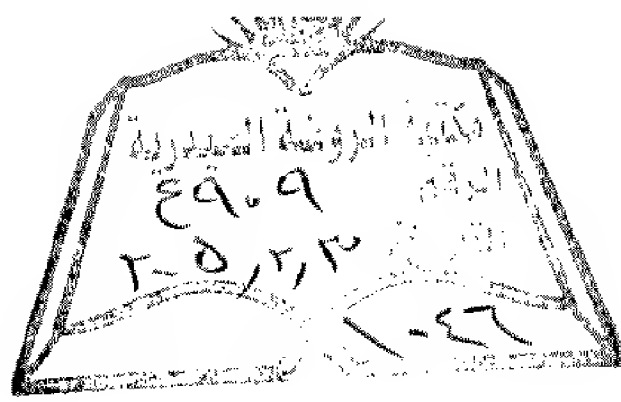 مكتبة الروضة الحيدرية
الرقم ٤٩٠٩
٢-٥,٢,٣
١-٤٦